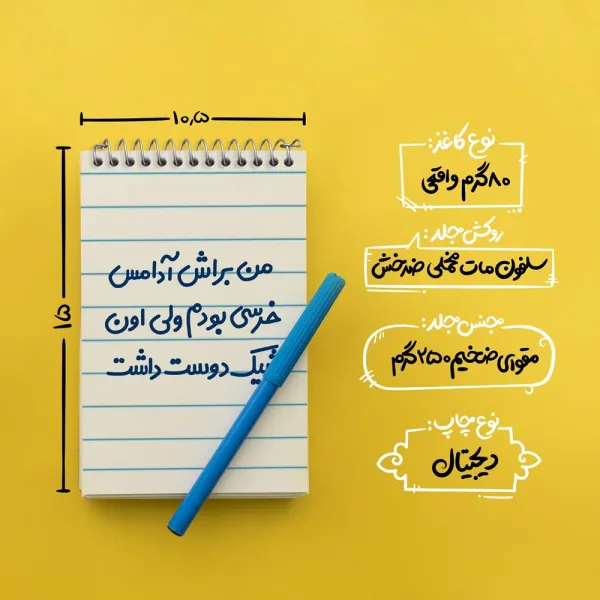 ۱۰٫۵
۱۵
من براش آدامس
خرسی بودم ولی اون
شیک دوست داشت
نوع کاغذ:
۸۰گرم واقعی
روکش جلد:
سلفون مات مخملی ضدخش
جنس جلد:
مقوای ضخیم ۲۵۰گرم
نوع چاپ:
دیجیتال